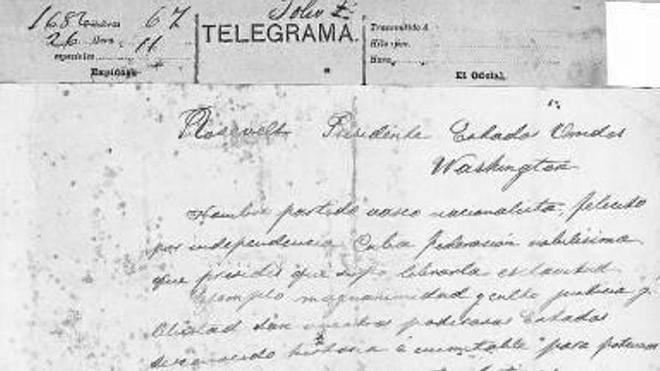 1682 67
26 11
Expídase
TELEGRAMA.
Transmitido á
Hilo
Hora
El Oficial,
Roosevelt Presidente Estados Unidos
Washington
Nombre partido vasco nacionalista, felicito
por independencia Cuba federación nobilísima
que presidís que supo librarla esclavitud
Ejemplo magnanimidad y culto justicia y
libertad dan vuestros poderosos Estados
desconocido historia é inimitable para potencias